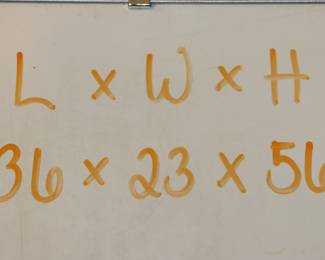 L x W x H
36 x 23 x 56